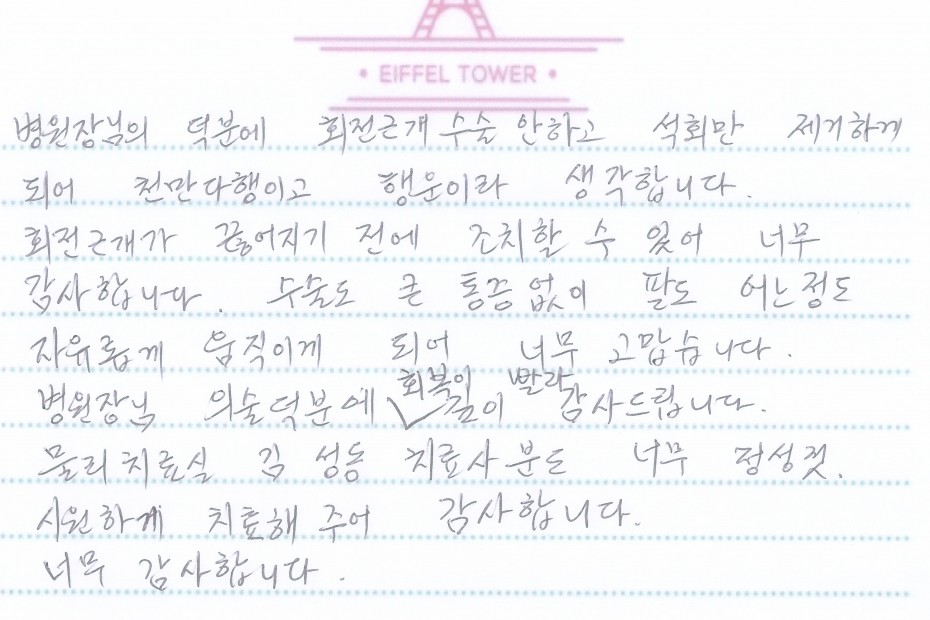 • EIFFEL TOWER •
병원장님의 덕분에 회전근개 수술 안하고 석회만 제거하게
되어 천만다행이고 행운이라 생각합니다.
회전근개가 끊어지기 전에 조치할 수 있어 너무
감사합니다. 수술도 큰 통증없이 팔도 어느정도
자유롭게 움직이게 되어 너무 고맙습니다.
회복이 빨라
병원장님 의술덕분에 깊이 감사드립니다.
물리치료실 김성동 치료사분도 너무 정성껏.
시원하게 치료해 주어 감사합니다.
너무 감사합니다.